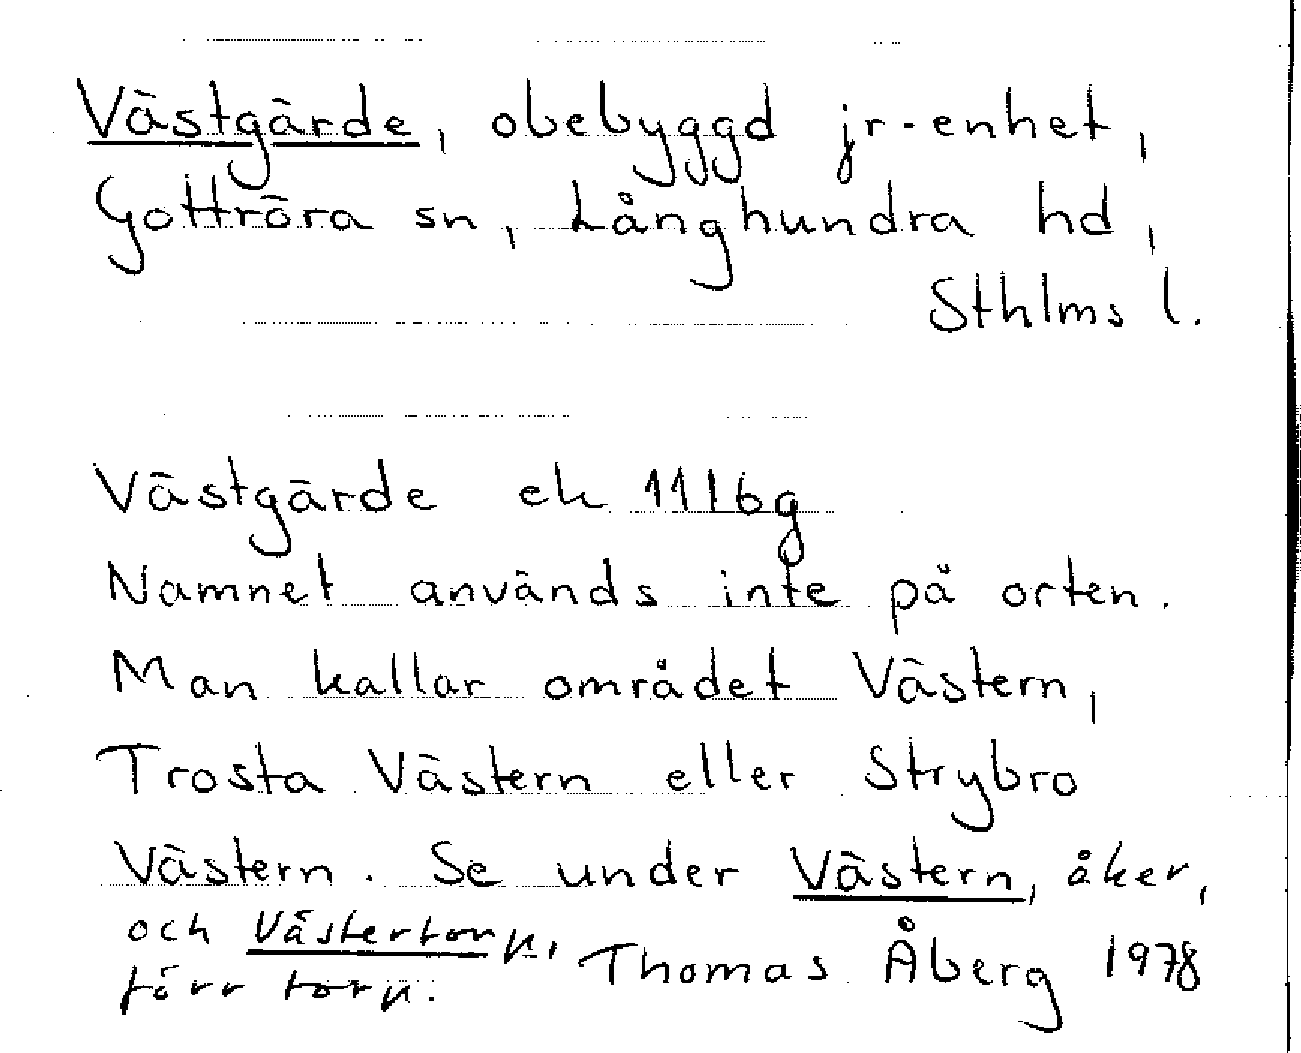 Västgärde, obebyggd jr-enhet,
Gottröra sn, Långhundra hd,
Sthlms l.
Västgärde ek 11I6g
Namnet används inte på orten.
Man kallar området Västern,
Trosta Västern eller Strybro
Västern. Se under Västern, åker,
och Västertorp,
förr torp.
Thomas Åberg 1978